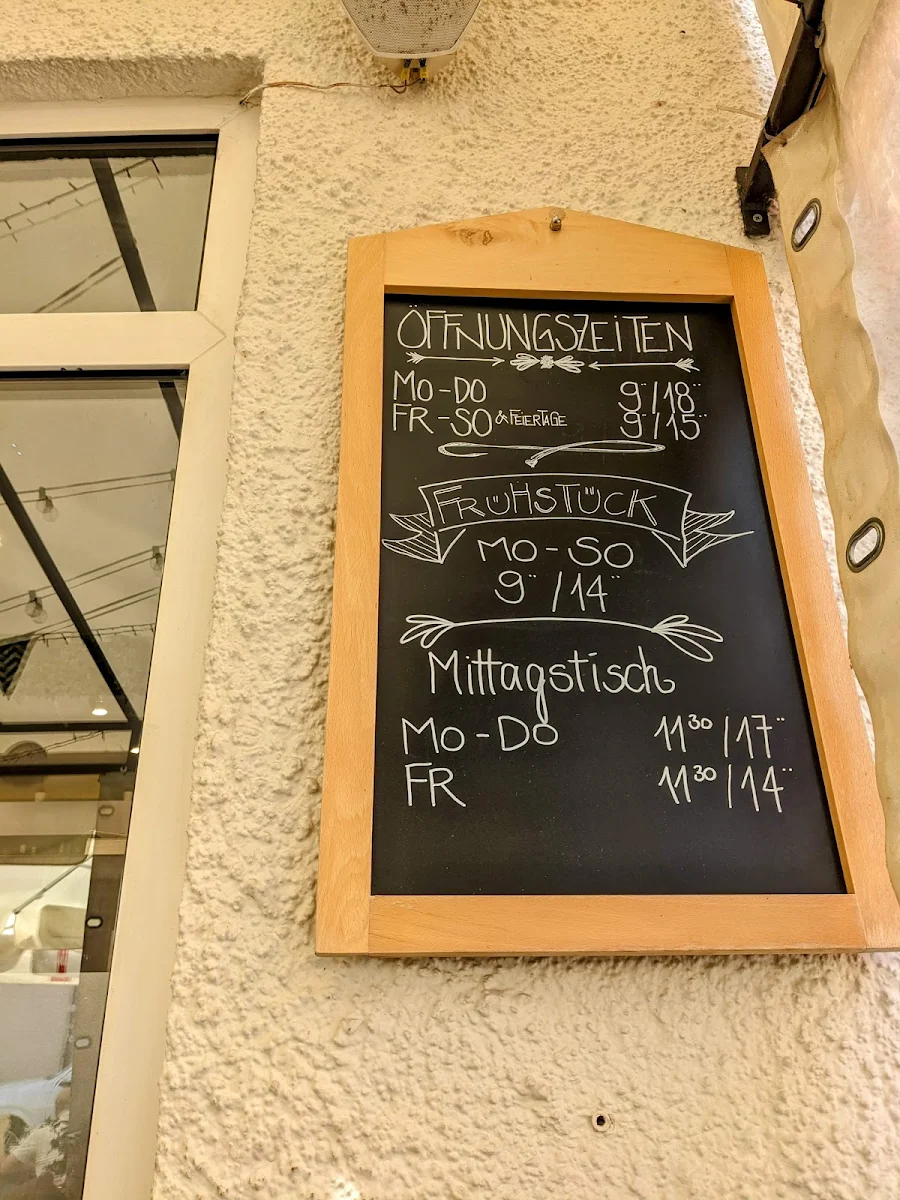 ÖFFNUNGSZEITEN
MO-DO 9¨/18¨
FR-SO & FEIERTAGE 9¨/15¨
FRÜHSTÜCK
MO-SO
9¨/14¨
Mittagstisch
MO-DO 11³⁰/17¨
FR 11³⁰/14¨